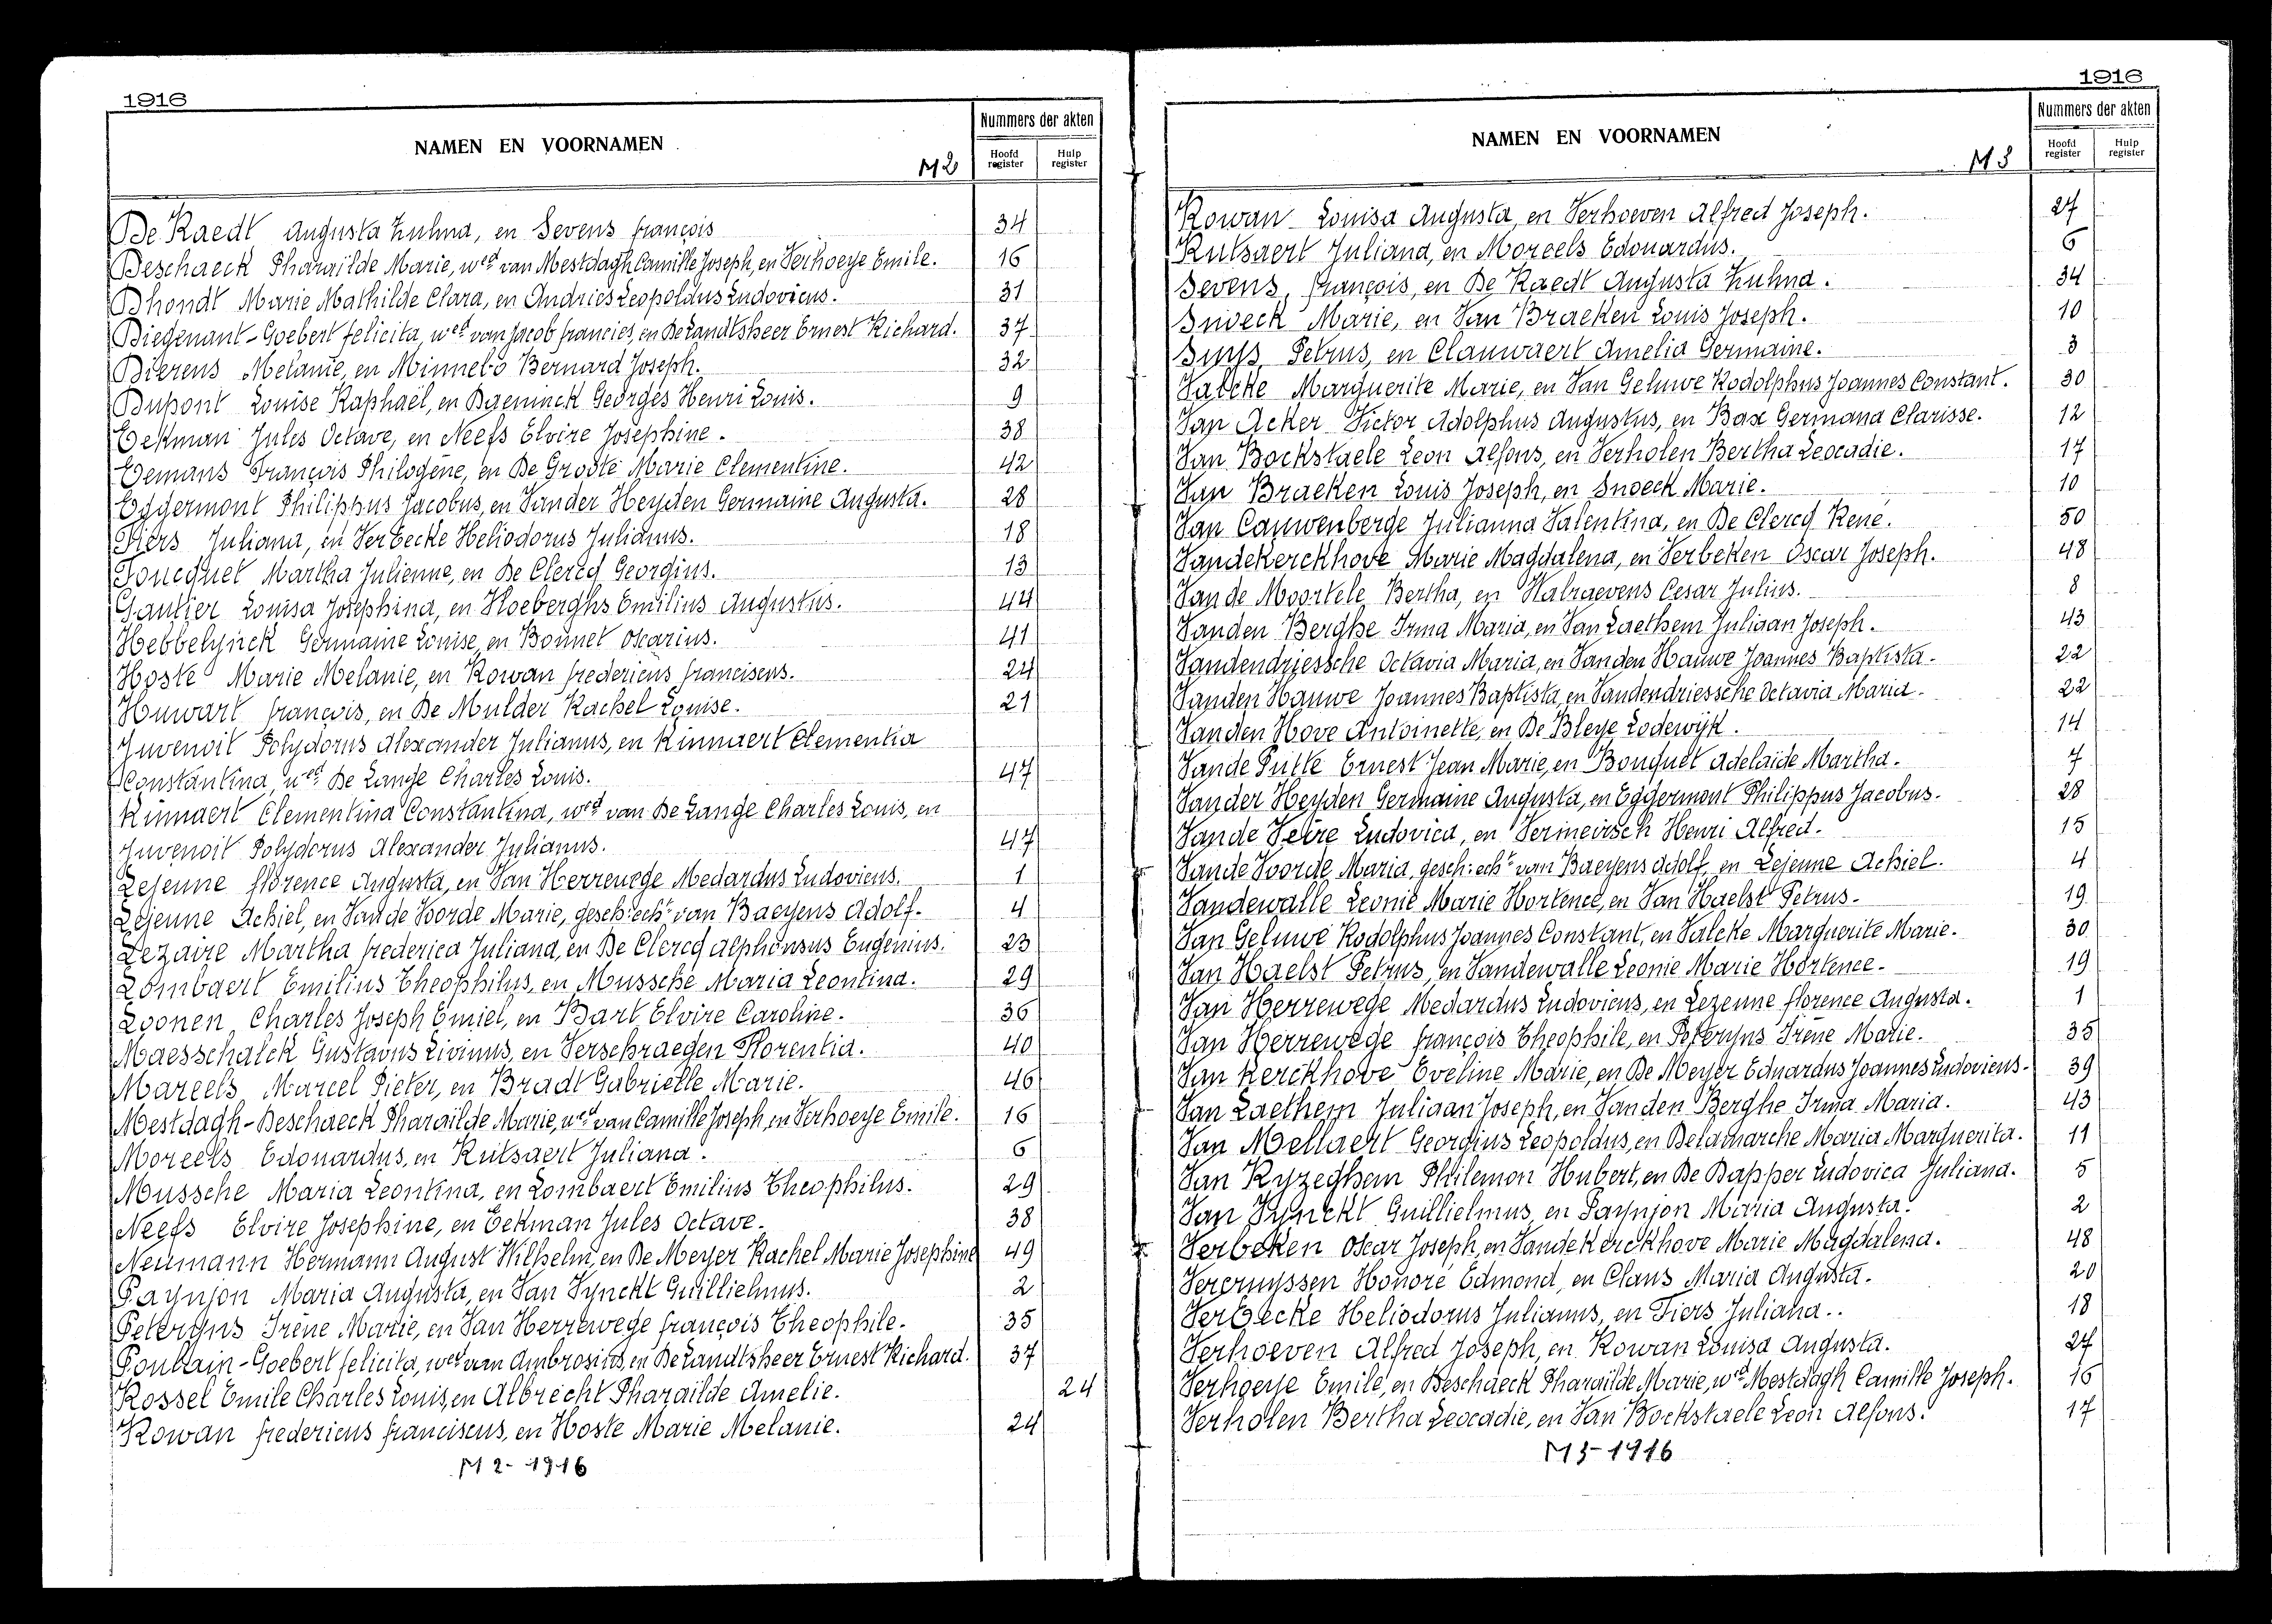 1916
NAMEN EN VOORNAMEN
M2
Nummers der akten
Hoofd register
Hulp register
De Raedt Augusta Zulma, en Sevens françois 34
Deschaeck Pharaïlde Marie, wed van Mestdagh Camille Joseph, en Verhoeye Emile. 16
Dhondt Marie Mathilde Clara, en Andries Leopoldus Ludovicus. 31
Diegenant-Goebert felicita, wed van Jacob francies, en De Landtsheer Ernest Richard. 37
Dierens Melanie, en Minnebo Bernard Joseph. 32
Dupont Louise Raphaël, en Daeninck Georges Henri Louis. 9
Eekman Jules Octave, en Neefs Elvire Josephine. 38
Eemans François Philogène, en De Groote Marie Clementine. 42
Eggermont Philippus Jacobus, en Vander Heyden Germaine Augusta. 28
Fiers Juliana, en Verbecke Heliodorus Julianus. 18
Foucquet Martha Julienne, en De Clercq Georgius. 13
Gautier Louisa Josephina, en Hoeberghs Emilius Augustus. 44
Hebbelynck Germaine Louise, en Bonnet Oscarius. 41
Hoste Marie Melanie, en Rowan fredericus franciscus. 24
Huwart françois, en De Mulder Rachel Louise. 21
Juvenoit Polydorus Alexander Julianus, en Kinnaert Clementia
Constantina, wed De Lange Charles Louis. 47
Kinnaert Clementina Constantina, wed van De Lange Charles Louis, en
Juvenoit Polydorus Alexander Julianus. 47
Lejenne florence Augusta, en Van Herrewege Medardus Ludovicus. 1
Lejenne Achiel, en Van de Voorde Marie, gesch: echt van Baeyens Adolf. 4
Lezaire Martha frederica Juliana, en De Clercq Alphonsus Eugenius. 23
Lombaert Emilius Theophilus, en Mussche Maria Leontina. 29
Loonen Charles Joseph Emiel, en Bart Elvire Caroline. 36
Maesschalck Gustavus Livinus, en Verschraegen Florentia. 40
Mareels Marcel Pieter, en Bradt Gabrielle Marie. 46
Mestdagh-Deschaeck Pharaïlde Marie, wed van Camille Joseph, en Verhoeye Emile. 16
Moreels Edouardus, en Rutsaert Juliana. 6
Mussche Maria Leontina, en Lombaert Emilius Theophilus. 29
Neefs Elvire Josephine, en Eekman Jules Octave. 38
Neumann Hermann August Wilhelm, en De Meyer Rachel Marie Josephine 49
Paynjon Maria Augusta, en Van Tynckt Guillielmus. 2
Peteryns Irène Marie, en Van Herrewege françois Theophile. 35
Poulain-Goebert felicita, wed van Ambrosius, en De Landtsheer Ernest Richard. 37
Rossel Emile Charles Louis, en Albrecht Pharaïlde Amelie. 24
Rowan fredericus franciscus, en Hoste Marie Melanie. 24
M2-1916
1916
NAMEN EN VOORNAMEN
M3
Nummers der akten
Hoofd register
Hulp register
Rowan Louisa Augusta, en Verhoeven Alfred Joseph. 27
Rutsaert Juliana, en Moreels Edouardus. 6
Sevens, françois, en De Raedt Augusta Zulma. 34
Snoeck Marie, en Van Braeken Louis Joseph. 10
Suys Petrus, en Clauwaert Amelia Germaine. 3
Valcke Marguerite Marie, en Van Geluwe Rodolphus Joannes Constant. 30
Van Acker Victor Adolphus Augustus, en Bax Germana Clarisse. 12
Van Bockstaele Leon Alfons, en Verholen Bertha Leocadie. 17
Van Braeken Louis Joseph, en Snoeck Marie. 10
Van Cauwenberge Julianna Valentina, en De Clercq René. 50
Vandekerckhove Marie Magdalena, en Verbeken Oscar Joseph. 48
Van de Moortele Bertha, en Walraevens Cesar Julius. 8
Vanden Berghe Irma Maria, en Van Laethem Juliaan Joseph. 43
Vandendriessche Octavia Maria, en Vanden Hauwe Joannes Baptista. 22
Vanden Hauwe Joannes Baptista, en Vandendriessche Octavia Maria. 22
Vanden Hove Antoinette, en De Bleye Lodewijk. 14
Van de Putte Ernest Jean Marie, en Bouquet Adelaïde Martha. 7
Vander Heyden Germaine Augusta, en Eggermont Philippus Jacobus. 28
Van de Veire Ludovica, en Vermeirsch Henri Alfred. 15
Van de Voorde Maria, gesch: echt van Baeyens Adolf, en Lejenne Achiel. 4
Vandewalle Leonie Marie Hortence, en Van Haelst Petrus. 19
Van Geluwe Rodolphus Joannes Constant, en Valcke Marguerite Marie. 30
Van Haelst Petrus, en Vandewalle Leonie Marie Hortence. 19
Van Herrewege Medardus Ludovicus, en Lezenne florence Augusta. 1
Van Herrewege françois Theophile, en Peteryns Irène Marie. 35
Van Kerckhove Eveline Marie, en De Meyer Eduardus Joannes Ludovicus. 39
Van Laethem Juliaan Joseph, en Vanden Berghe Irma Maria. 43
Van Mellaert Georgius Leopoldus, en Delamarche Maria Marguerita. 11
Van Ryzeghem Philemon Hubert, en De Dapper Ludovica Juliana. 5
Van Tynckt Guillielmus, en Paynjon Maria Augusta. 2
Verbeken Oscar Joseph, en Vandekerckhove Marie Magdalena. 48
Vercruyssen Honoré Edmond, en Claus Maria Augusta. 20
Verbecke Heliodorus Julianus, en Fiers Juliana.. 18
Verhoeven Alfred Joseph, en Rowan Louisa Augusta. 27
Verhoeye Emile, en Deschaeck Pharaïlde Marie, wed Mestdagh Camille Joseph. 16
Verholen Bertha Leocadie, en Van Bockstaele Leon Alfons. 17
M3-1916